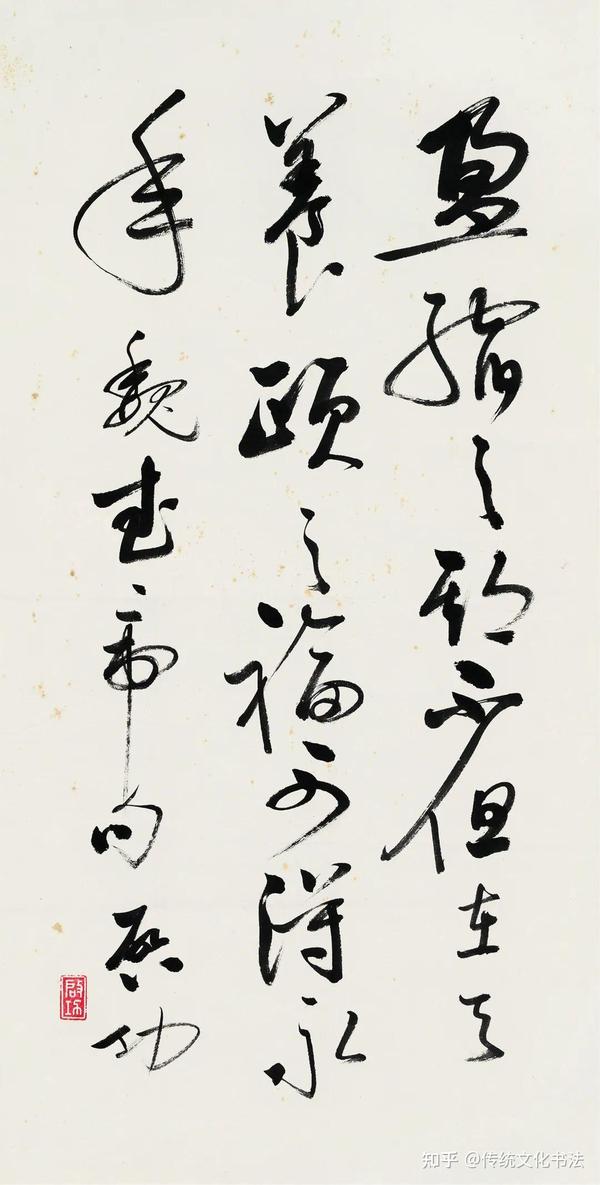 盈縮之期不但在天
養頤之福可得永
年魏武帝句啓功
啟功
知乎 @传统文化书法